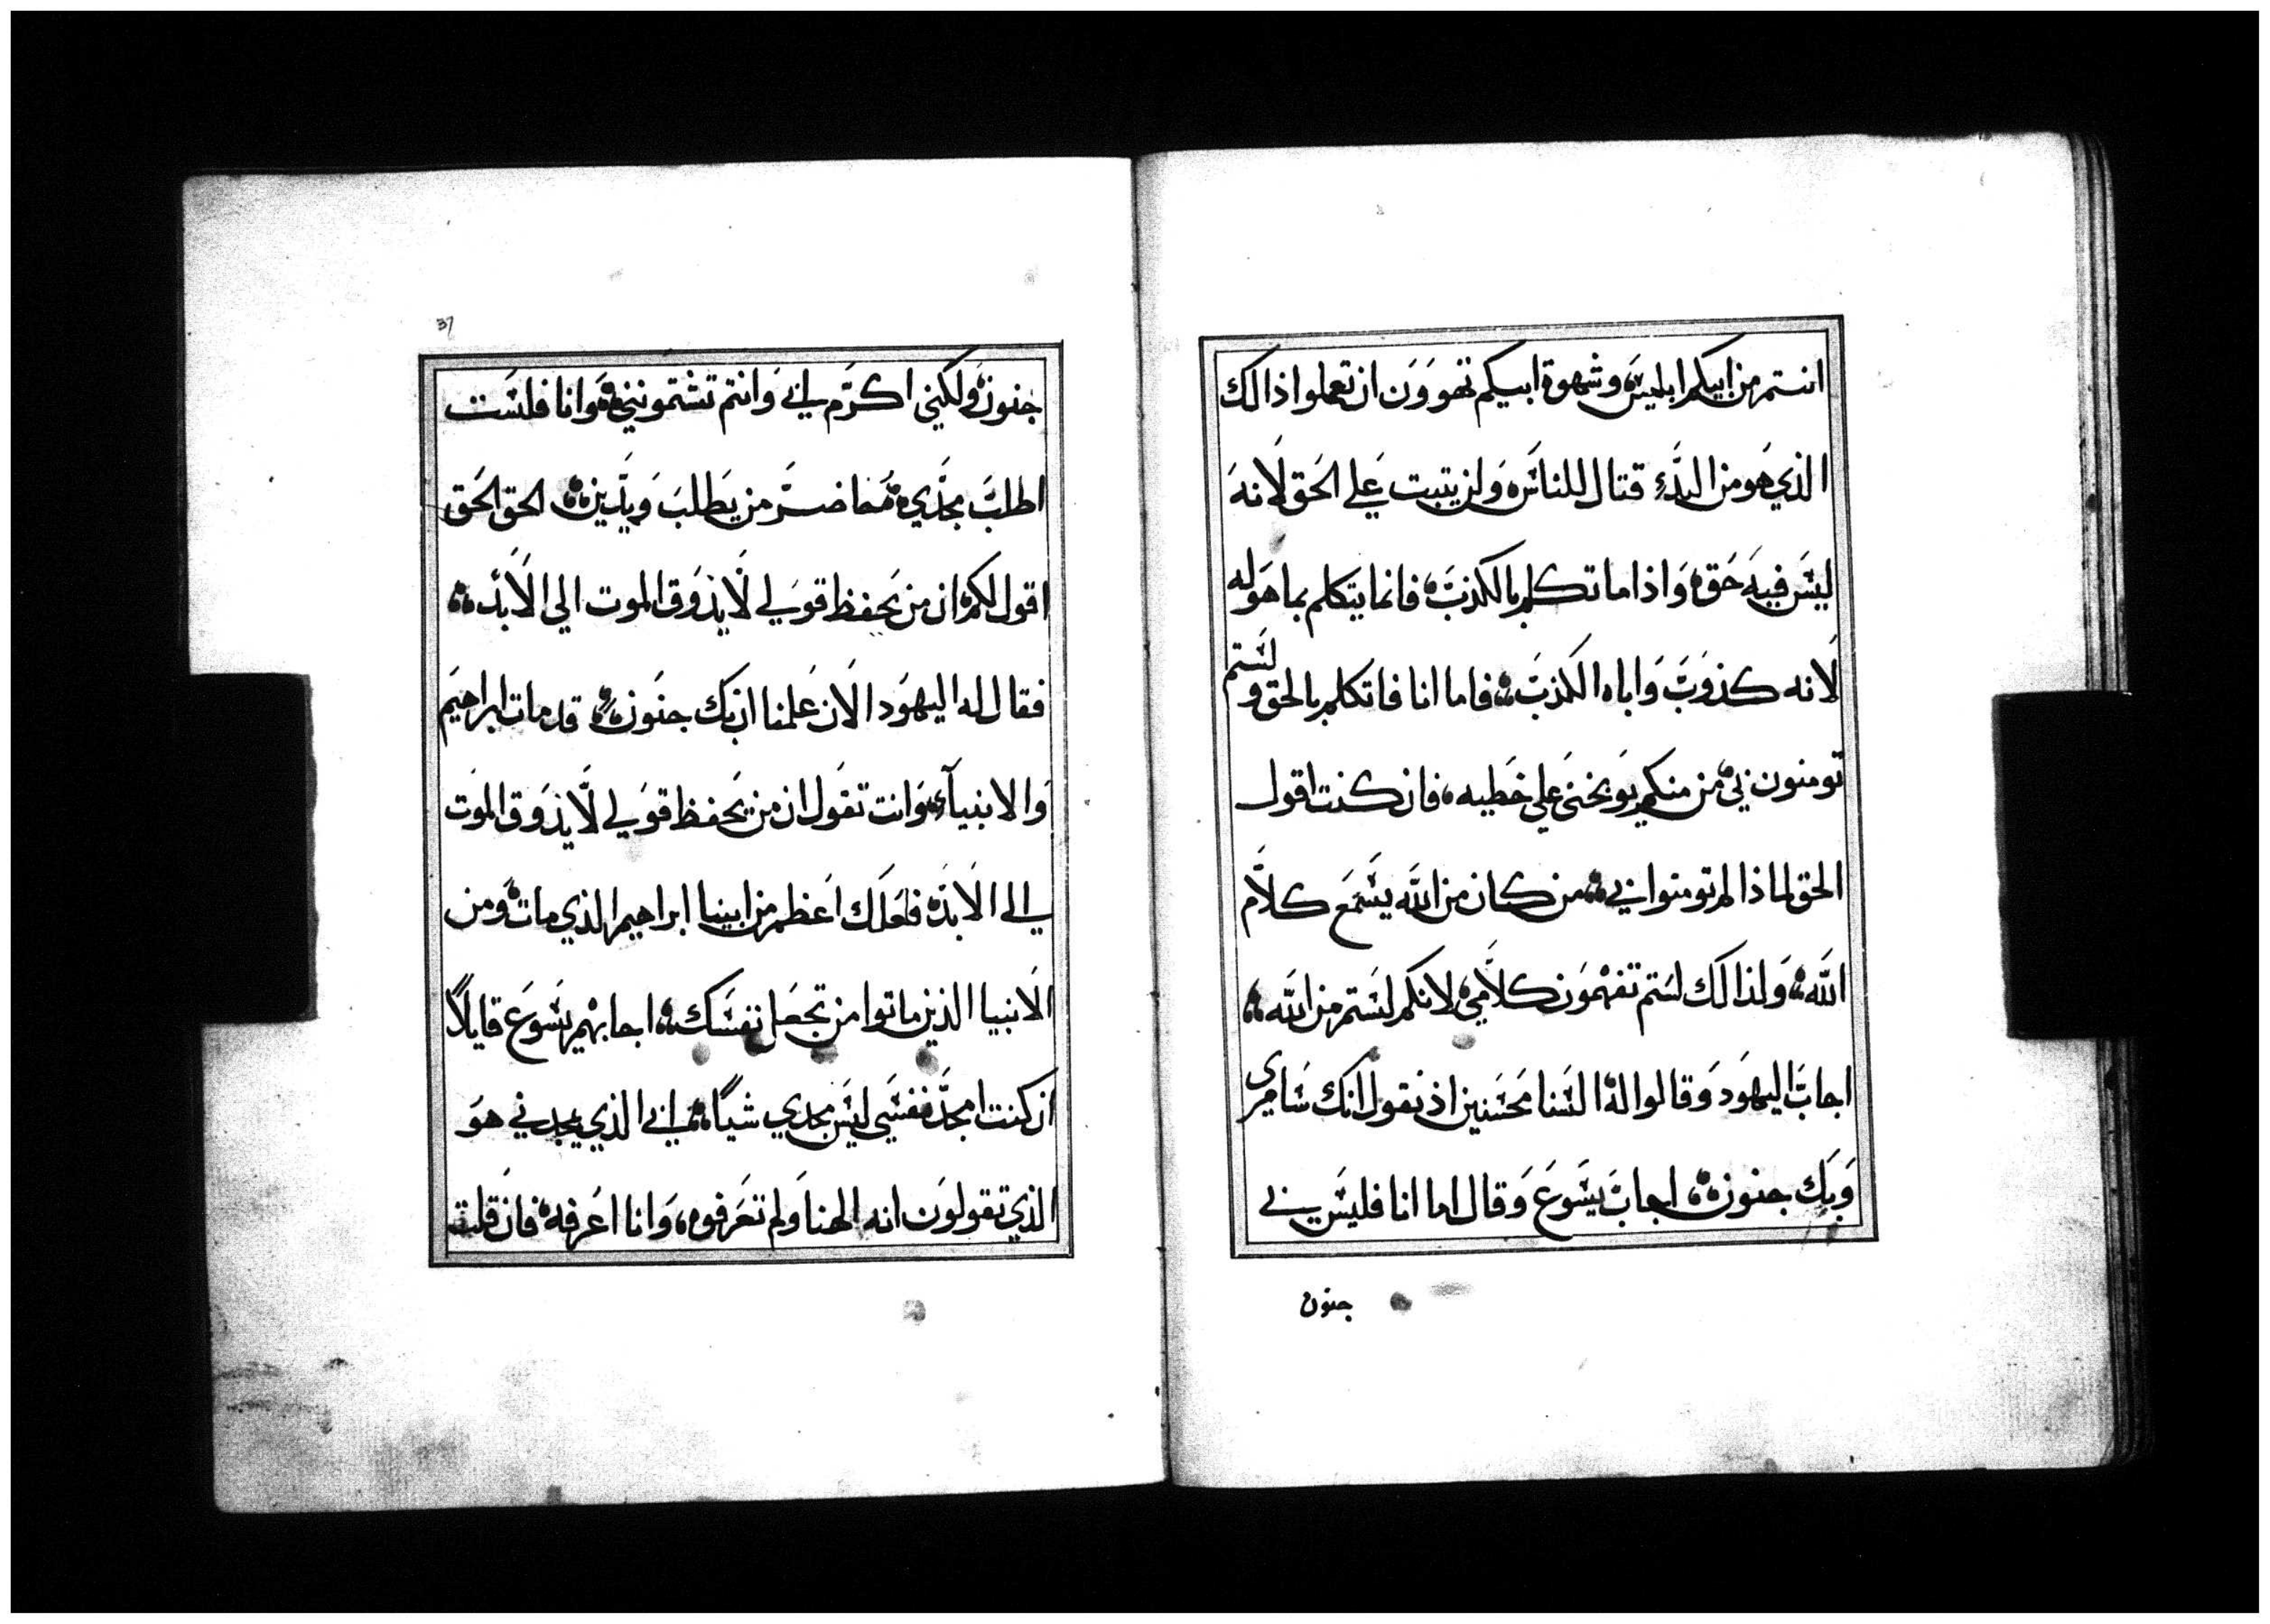 انتم من ابيكم ابليس وشهوة ابيكم تهوون ان تعملوا ذالك
الذي هو من البدء قتال للناس ولن يتبت علي الحق لانه
ليس فيه حق واذا ما تكلم بالكذب فانما يتكلم بما هو له
لانه كذوب واباه الكذب فاما انا فاتكلم بالحق ولستم
تومنون بي من منكم يوبخني علي خطيه فان كنت اقول
الحق لماذا لم تومنوا بي من كان من الله يسمع كلام
الله ولذالك لستم تفهمون كلامي لانكم لستم من الله
اجاب اليهود وقالوا له السنا محسنين اذ نقول انك سامري
وبك جنون اجاب يسوع وقال اما انا فليس بي
جنون
37
جنون ولكني اكرم ابي وانتم تشتمونني وانا فلست
اطلب مجدي من يطلب ويدين الحق الحق
اقول لكم ان من يحفظ قولي لا يذوق الموت الي الابد
فقال له اليهود الان علمنا ان بك جنون قد مات ابراهيم
والانبياء وانت تقول ان من يحفظ قولي لا يذوق الموت
الي الابد فلعلك اعظم من ابينا ابراهيم الذي مات ومن
الانبيا الذين ماتوا من تجعل نفسك اجابهم يسوع قايلا
ان كنت امجد نفسي ليس مجدي شيا ابي الذي يمجدني هو
الذي تقولون انه الهنا ولم تعرفوه وانا اعرفه فان قلت